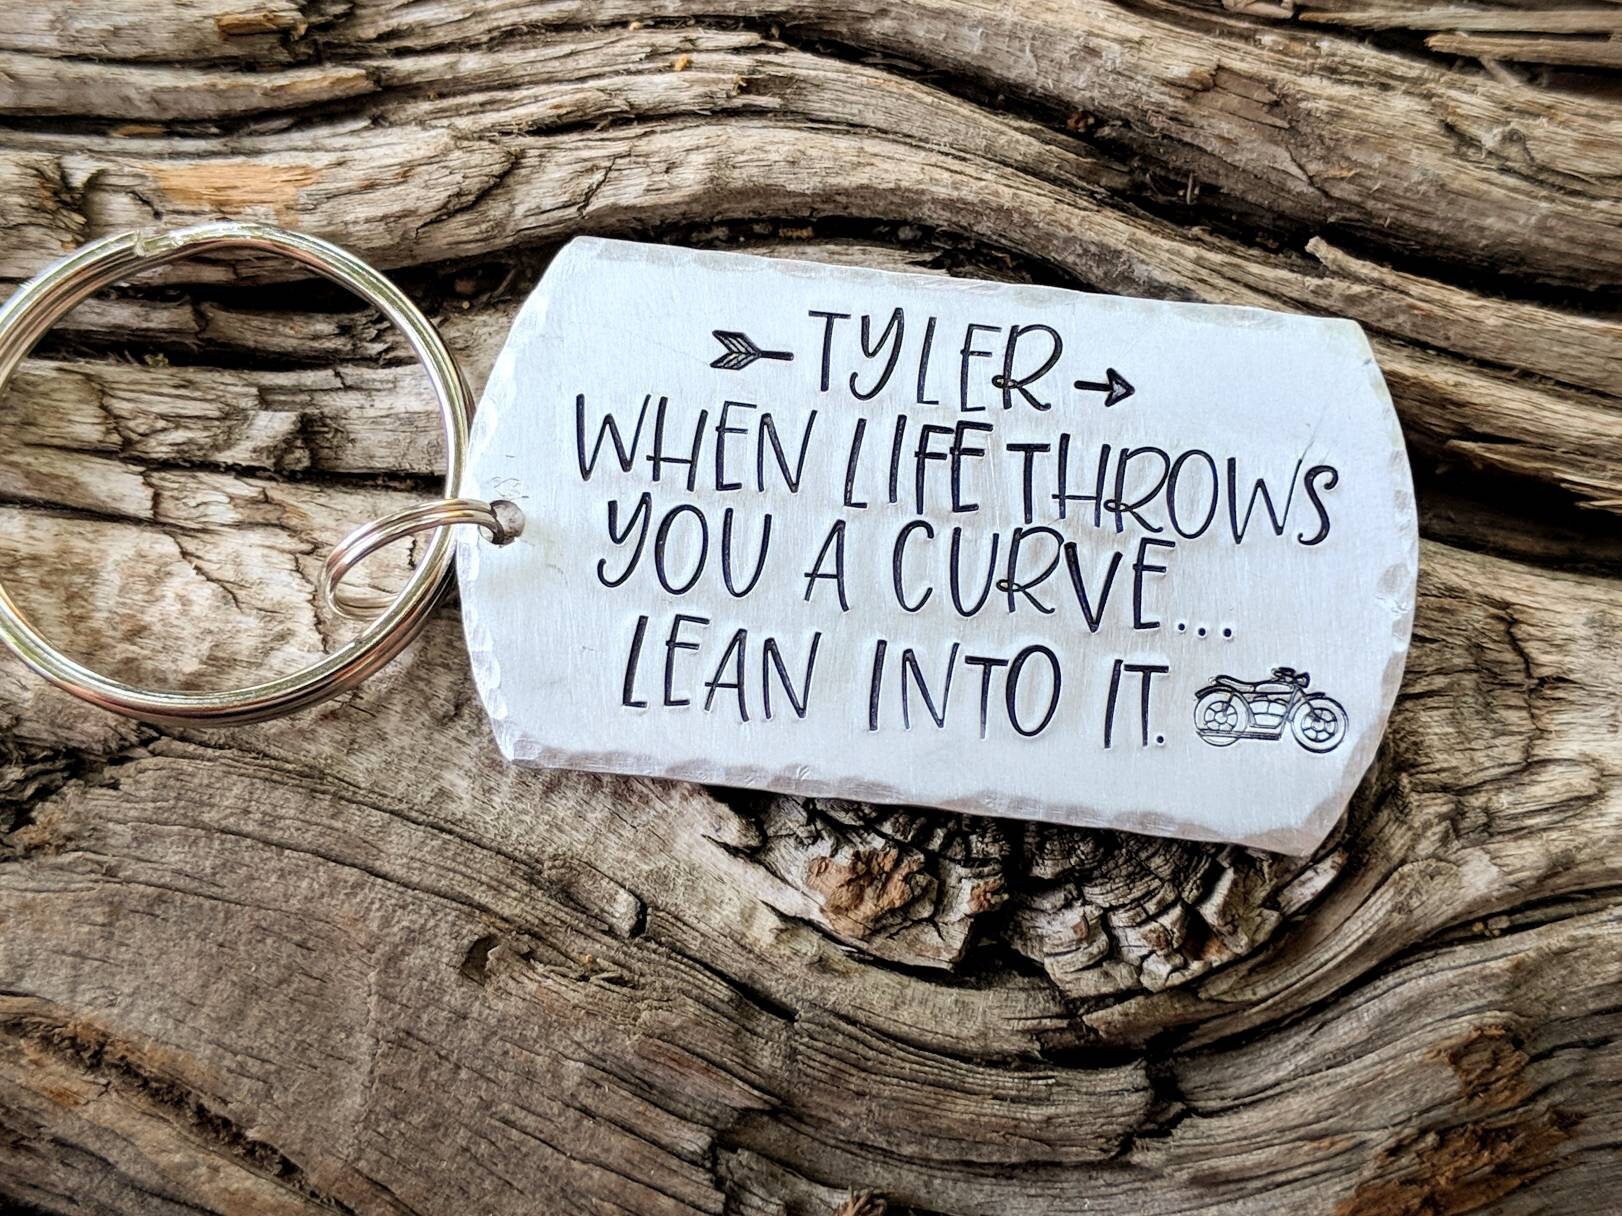 TYLER
WHEN LIFE THROWS
YOU A CURVE...
LEAN INTO IT.